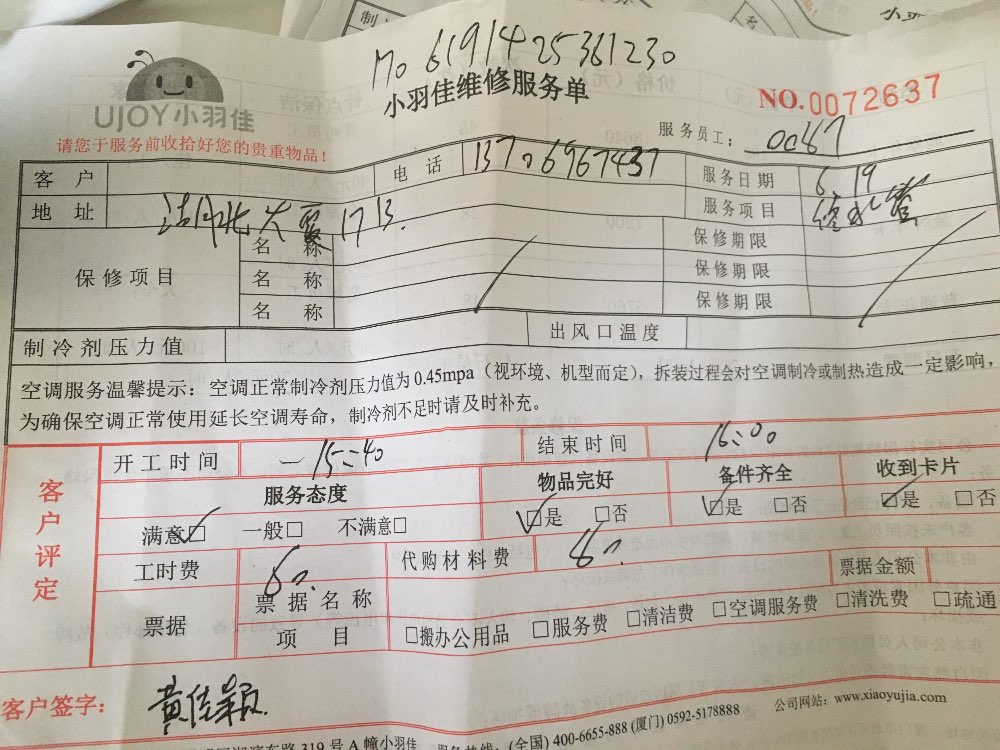 No 6191425361230
UJOY小羽佳
小羽佳维修服务单
NO.0072637
请您于服务前收拾好您的贵重物品！
服务员工：0087
客 户
电 话 13706967437
服务日期 6.19
地 址 湖北大厦1713.
服务项目 修水管
保修项目
名 称
保修期限
名 称
保修期限
名 称
保修期限
制冷剂压力值
出风口温度
空调服务温馨提示：空调正常制冷剂压力值为0.45mpa（视环境、机型而定），拆装过程会对空调制冷或制热造成一定影响，
为确保空调正常使用延长空调寿命，制冷剂不足时请及时补充。
客户评定
开工时间 15:40
结束时间 16:00
服务态度
物品完好
备件齐全
收到卡片
满意□ 一般□ 不满意□
□是 □否
□是 □否
□是 □否
工时费 60.
代购材料费 80.
票据
票据名称
票据金额
项 目
□搬办公用品 □服务费 □清洁费 □空调服务费 □清洗费 □疏通
客户签字：黄佳颖
公司网站：www.xiaoyujia.com
东路319号A幢小羽佳 服务热线：(全国) 400-6655-888 (厦门) 0592-5178888